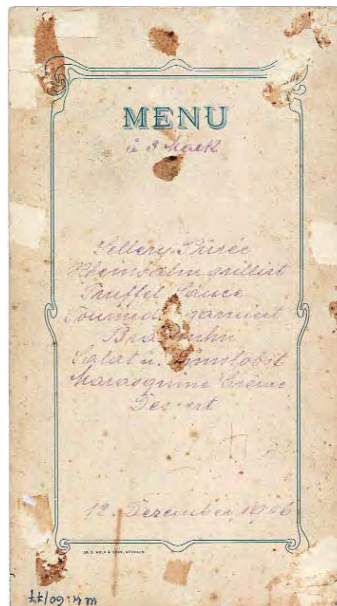 MENU
à 3 Mark
Sellery-Pürée
Rheinsalm grillirt
Trüffel Sauce
garniert
Salat u. Dunstobst
Marasquino Crème
Dessert
12. Dezember 1906